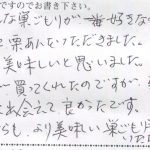 ですのでお書き下さい。
な巣ごもりが一番好きな
栗あんいただきました。
美味しいと思いました。
買ってくれたのですが、
出会えて良かったです。
らも、より美味しい巣ごもり